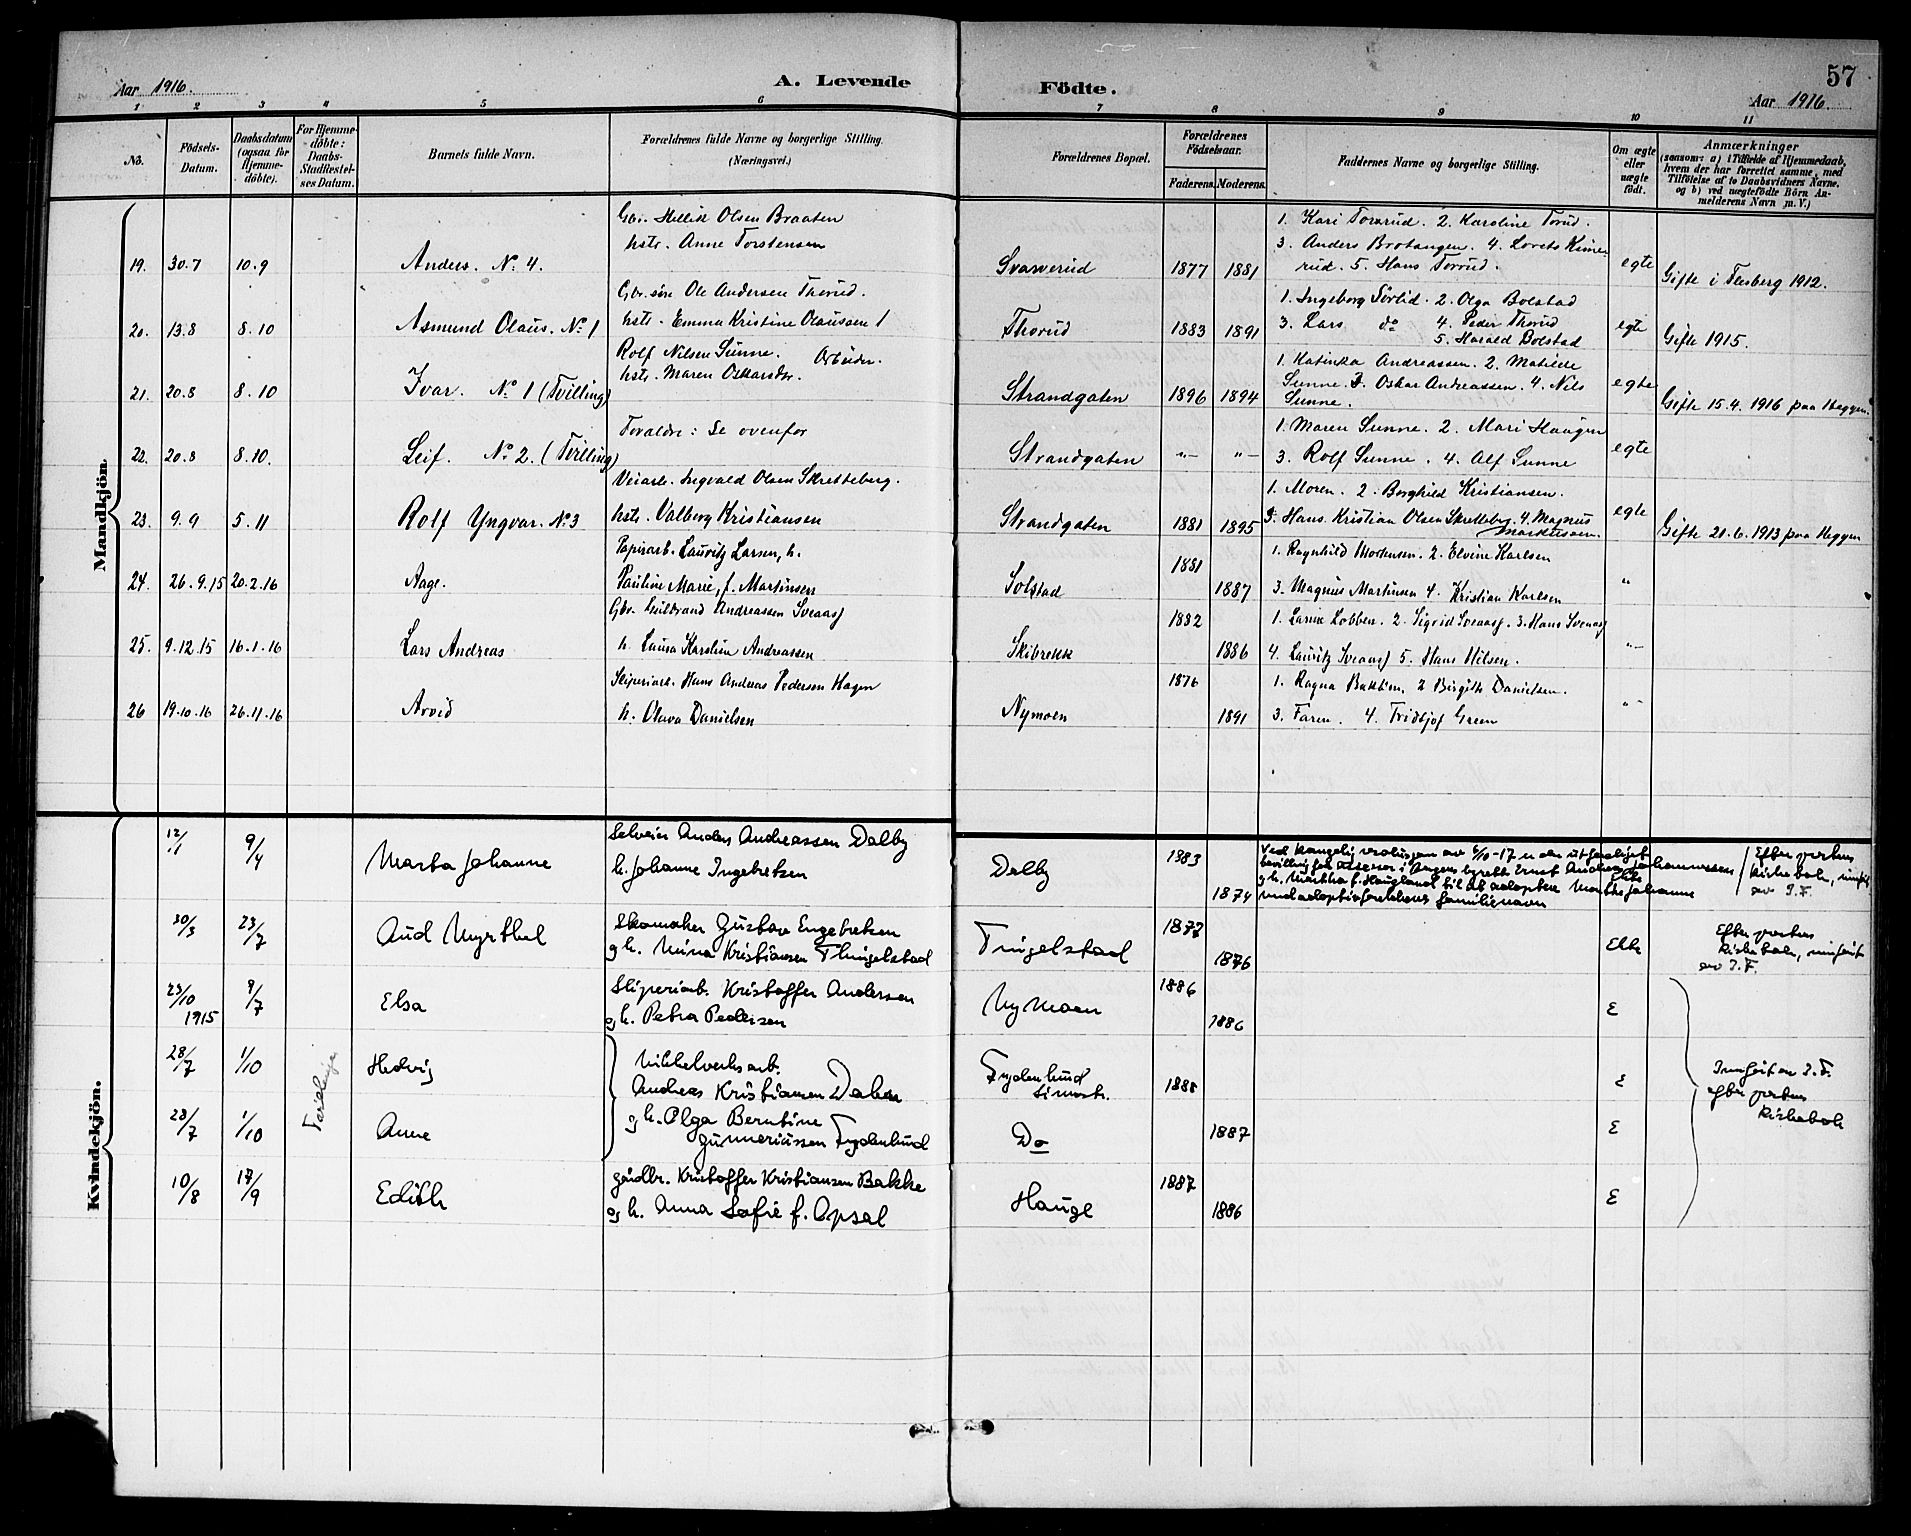 Aar 1916.
A. Levende Födte.
57
Aar 1916.
1 2 3 4 5 6 7 8 9 10 11
No.
Födsels-Datum.
Daabsdatum (ogsaa for Hjemmedöbte).
For Hjemmedöbte: Daabs-Stadfæstelses Datum.
Barnets fulde Navn.
Forældrenes fulde Navne og borgerlige Stilling.
(Næringsvei.)
Forældrenes Bopæl.
Forældrenes Födselsaar.
Faderens. Moderens.
Faddernes Navne og borgerlige Stilling.
Om ægte eller uægte födt.
Anmærkninger
(saasom: a) i Tilfælde af Hjemmedaab, hvem der har forrettet samme, med Tilföielse af to Daabsvidners Navne, og b) ved uægtefödte Börn Anmelderens Navn m. V.)
Mandkjön.
Gbr. Olsen Braaten
hstr. Anne Torstensen
1. Kari Torsrud. 2. Karoline Torud.
3. Anders Brotangen. 4. Lorets
rud. 5. Hans Torrud.
19. 30.7 10.9 Anders. No. 4. 1877 1881 egte Gifte i Flesberg 1912.
Gbr. søn Ole Andersen Thorud.
hstr. Emma Kristine Olaussen
1. Ingeborg Sørlid. 2. Olga Bolstad
3. Lars do 4. Peder Thorud
5. Harald Bolstad
20. 13.8 8.10 Asmund Olaus. No. 1 Thorud 1883 1891 egte Gifte 1915.
Rolf Nilsen Sunne. Arbeider.
hstr. Maren Oskarsdr.
1. Katinka Andreassen. 2. Matilde
Sunne. 3. Oskar Andreassen. 4. Nils
Sunne.
21. 20.8 8.10 Ivar. No. 1 (Tvilling) Strandgaten 1896 1894 egte Gifte 15.4. 1916 paa Heggen.
Forældre: Se ovenfor
1. Maren Sunne. 2. Mari Haugen
3. Rolf Sunne. 4. Alf Sunne
22. 20.8 8.10. Leif. No. 2. (Tvilling) Strandgaten "- "- egte
Veiarb. Ingvald Olsen Skretteberg.
hstr. Valborg Kristiansen
1. Moren. 2. Borghild Kristiansen.
3. Hans Kristian Olsen Skretteberg. 4. Magnus
Markussen.
23. 9.9 5.11 Rolf Yngvar. No. 3 Strandgaten 1881 1895 egte Gifte 21.6.1913 paa Heggen
Papirarb. Lauritz Larsen, h.
Pauline Marie, f. Martinsen
1. Ragnhild Mortensen. 2. Elvine Karlsen
3. Magnus Martinsen 4. Kristian Karlsen
24. 26.9.15 20.2.16 Aage. Solstad 1881 1887 "
Gbr. Guldbrand Andreassen Sveaas
h. Laura Karoline Andreassen
1. Larine Lobben. 2. Sigrid Sveaas. 3. Hans Sveaas
4. Lauritz Sveaas 5. Hans Nilsen.
25. 9.12.15 16.1.16 Lars Andreas Skibrekk 1882 1886 "-
Sliperiarb. Hans Andreas Pedersen Hagen
h. Olava Danielsen
1. Ragna Bakken. 2 Birgitte Danielsen.
3. Faren. 4. Fridtjof Green
26 19.10.16 26.11.16 Arvid Nymoen 1876 1891 "-
Kvindekjön.
12/1 9/4 Marta Johanne
Selveier Anders Andreassen Dalby
h. Johanne Ingebretsen
Dalby 1883 1874
Ved kongelig resolusjon av 6/10-17 er der utferdiget
bevilling for assessor i byrett Ernst Andreas Johannessen
og h. Martha f. Haugland til at adoptere Martha Johanne
under adoptivforeldrenes familienavn
Efter prestens
kirkebok, innført
av I.F.
30/3 23/7 Aud Myrthel
Skomaker Gustav Engebretsen
og h. Mina Kristiansen Thingelstad
Tingelstad 1872 1876 Ekte
Efter prestens
kirkebok, innført
av I.F.
23/10 1915 9/7 Elsa
Sliperiarb. Kristoffer Andersen
og h. Petra Pedersen
Nymoen 1886 1886 E
28/7 1/10 Hedvig
Nikkelverksarb.
Andreas Kristiansen Dahlen
Frydenlund
Simostr. 1888 E
Innført av I.F.
efter prestens
kirkebok
28/7 1/10 Anne
og h. Olga Berntine
Gunneriussen Frydenlund
Do 1887 E
10/8 17/9 Edith
gårdbr. Kristoffer Kristiansen Bakke
og h. Anna Sofie f. Opsal
Hauge 1887 1886 E